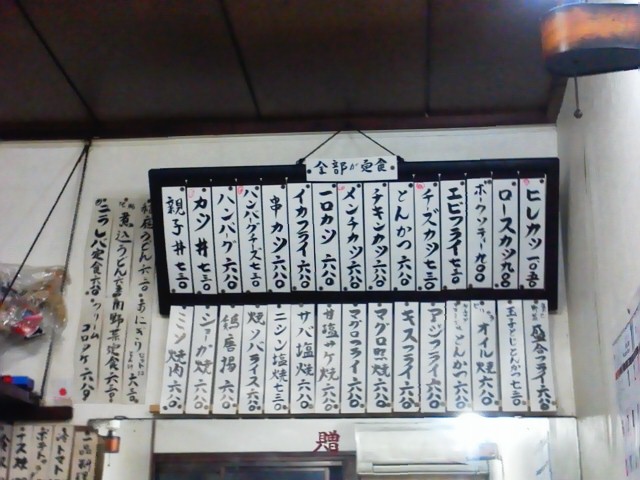 全部が定食
ヒレカツ 一〇五〇
ロースカツ 九〇〇
ポークソテー 九〇〇
エビフライ 七三〇
チーズカツ 七三〇
とんかつ 六八〇
チキンカツ 六八〇
メンチカツ 六八〇
一口カツ 六八〇
イカフライ 六八〇
串カツ 六八〇
ハンバーグチーズ 七三〇
ハンバーグ 六八〇
カツ丼 七三〇
親子丼 七三〇
盛合フライ 六八〇
玉子とじとんかつ 七三〇
オイル焼 六八〇
とんかつ 六八〇
アジフライ 六八〇
キスフライ 六八〇
マグロ照焼 六八〇
マグロフライ 六八〇
甘塩サケ焼 六八〇
サバ塩焼 六八〇
ニシン塩焼 七三〇
焼ソバライス 六八〇
鶏唐揚 六八〇
ショーガ焼 六八〇
ミソ焼肉 六八〇
おにぎり
煮込うどん
野菜定食 六三〇
ニラレバ定食 六八〇
クリームコロッケ 六八〇
一品料理
トマト
贈